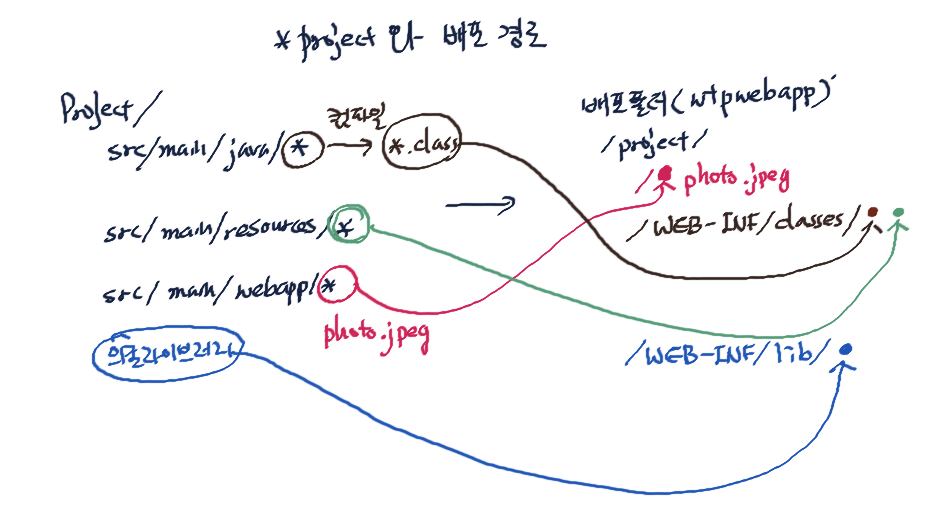 * project 와 배포 경로
Project/
src/main/java/* → 컴파일 *.class
src/main/resources/*
src/main/webapp/*
photo.jpeg
의존라이브러리
배포폴더(wtpwebapp)
/project/
/ photo.jpeg
/WEB-INF/classes/
/WEB-INF/lib/